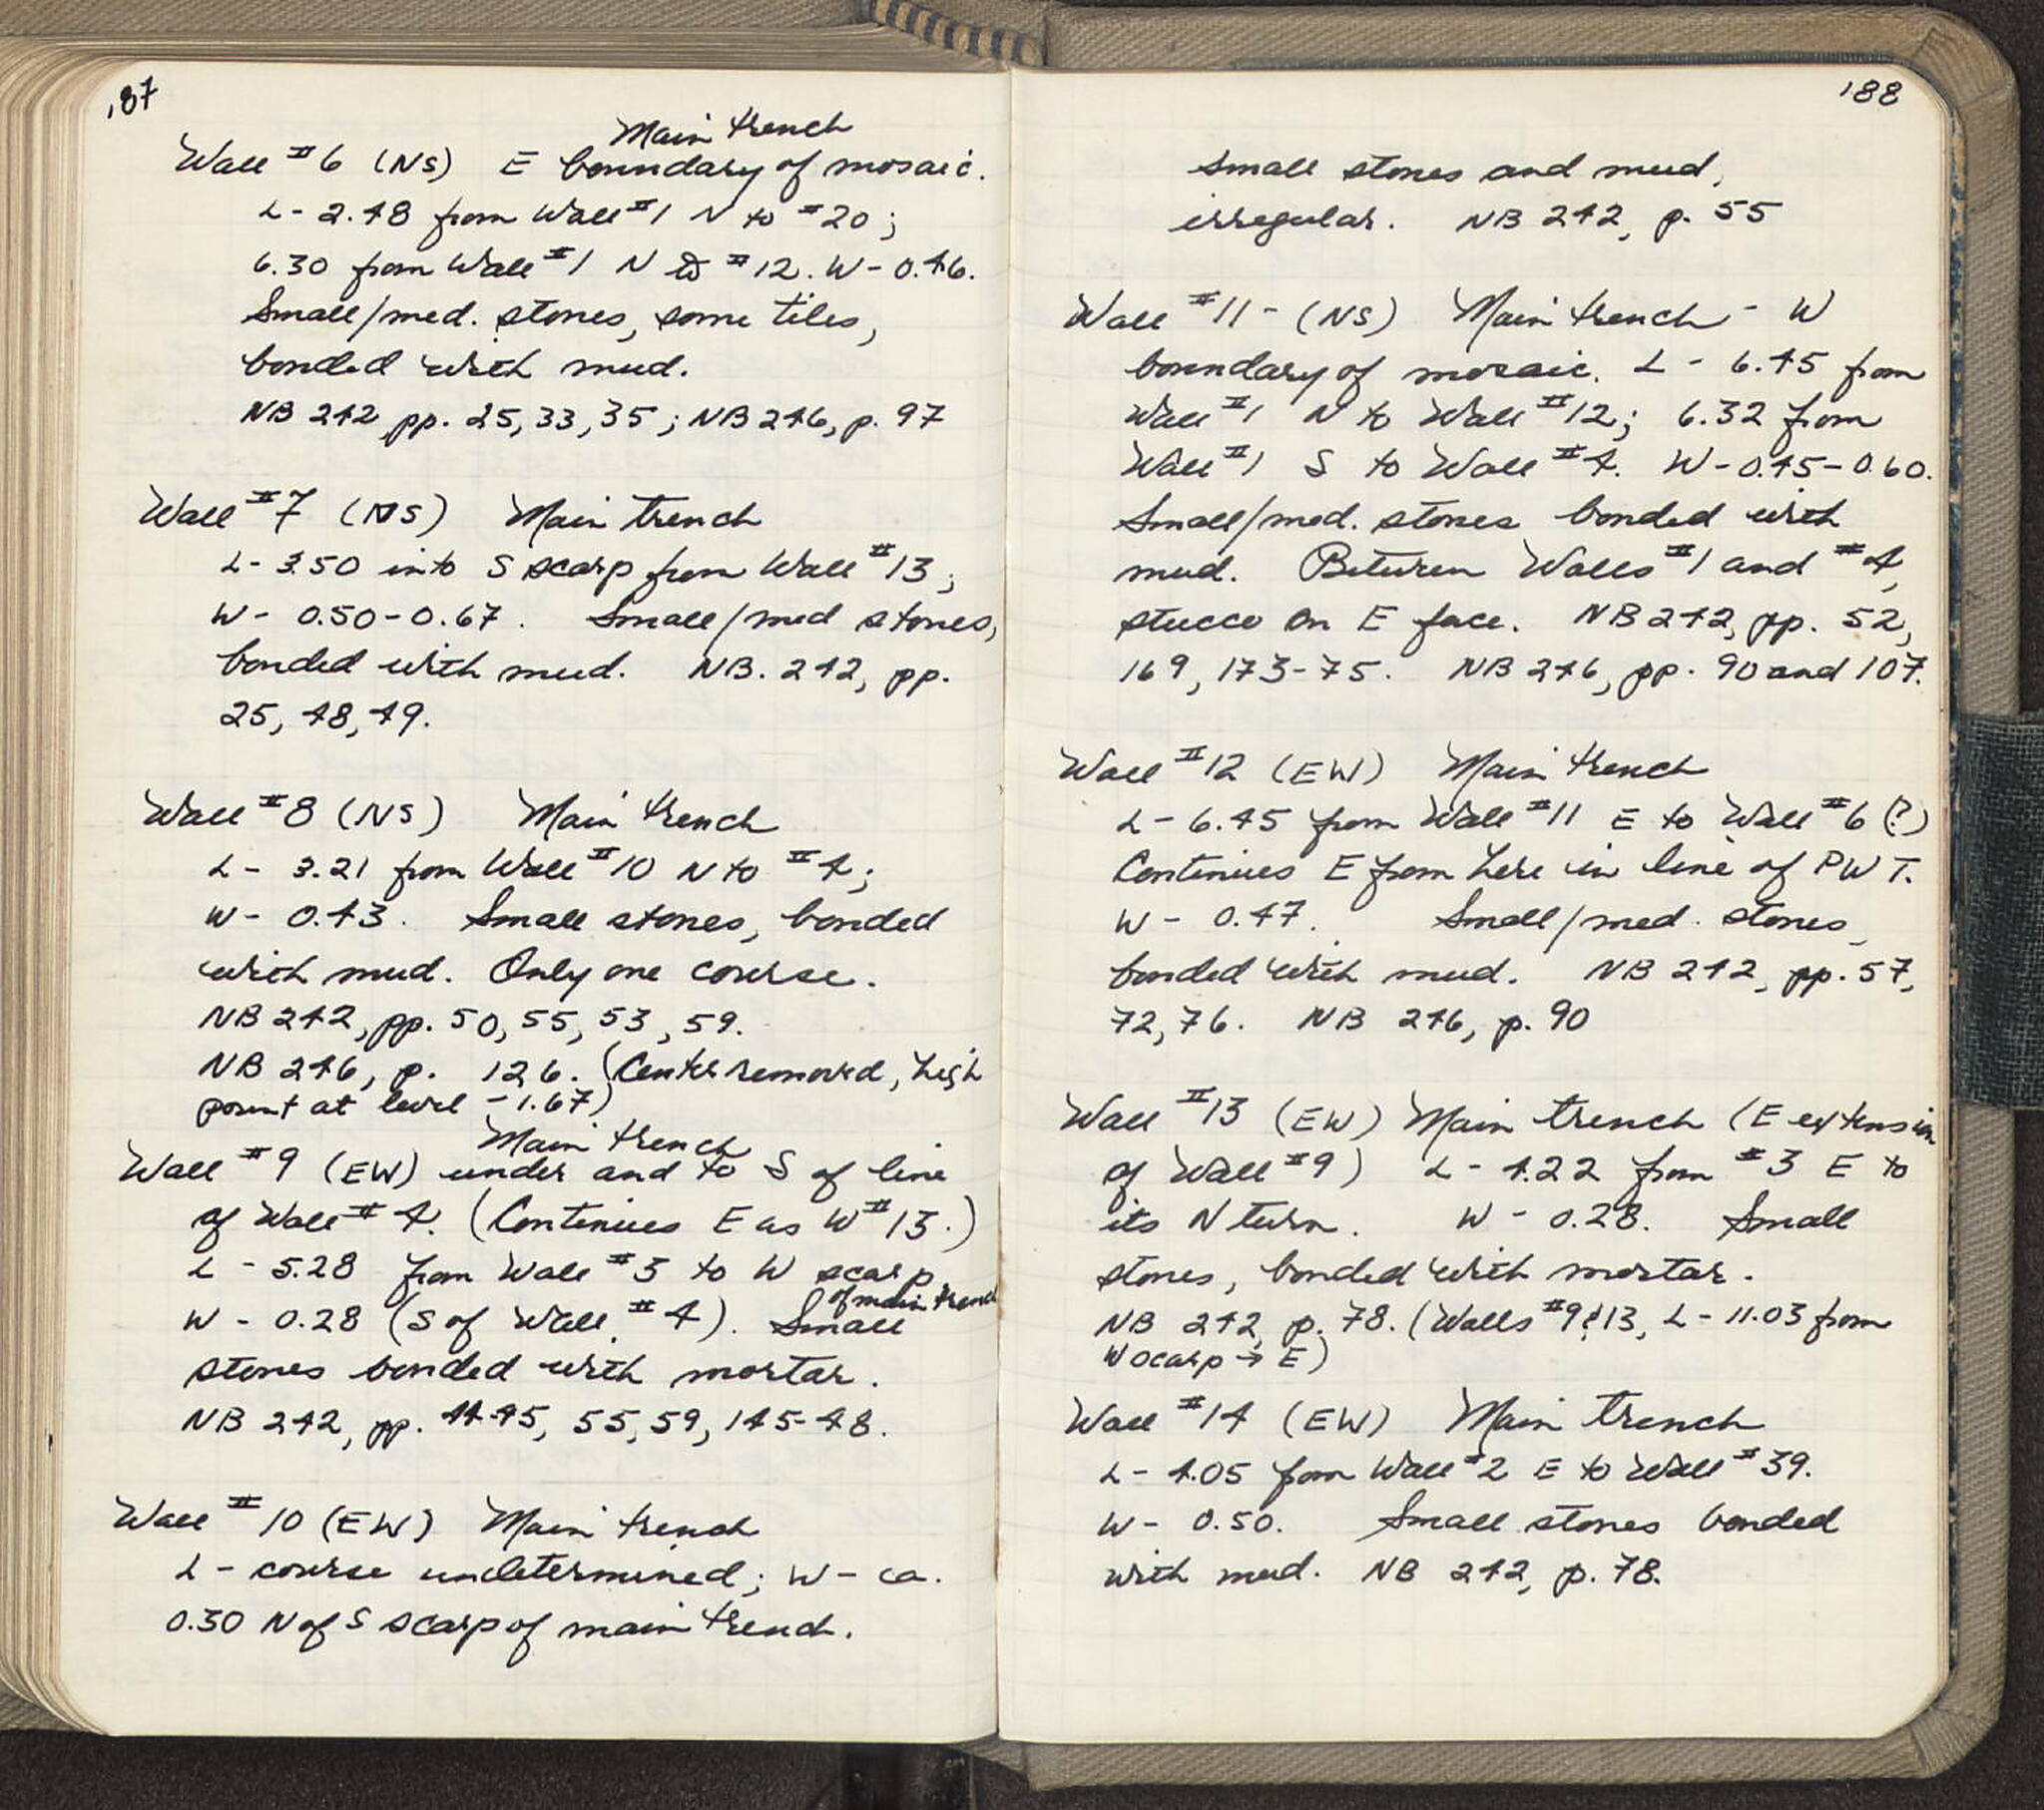 187
Main trench
Wall #6 (NS) E boundary of mosaic.
L- 2.48 from Wall #1 N to #20;
6.30 from Wall #1 N to #12. W- 0.46.
Small/med. stones, some tiles,
bonded with mud.
NB 242 pp. 25, 33, 35; NB 246, p. 97
Wall #7 (NS) Main trench
L- 3.50 into S scarp from Wall #13;
W- 0.50-0.67. Small/med stones,
bonded with mud. NB. 242, pp.
25, 48, 49.
Wall #8 (NS) Main trench
L- 3.21 from Wall #10 N to #4;
W- 0.43. Small stones, bonded
with mud. Only one course.
NB 242, pp. 50, 55, 53, 59.
NB 246, p. 126. (Center removed, high
point at level -1.67)
Main trench
Wall #9 (EW) under and to S of line
of Wall #4. (Continues E as W #13.)
L - 5.28 from Wall #3 to W scarp
of main trench
W - 0.28 (S of Wall #4). Small
stones bonded with mortar.
NB 242, pp. 44-45, 55, 59, 145-48.
Wall #10 (EW) Main trench
L - course undetermined; W - ca.
0.30 N of S scarp of main trench.
188
small stones and mud,
irregular. NB 242, p. 55
Wall #11- (NS) Main trench - W
boundary of mosaic. L - 6.45 from
Wall #1 N to Wall #12; 6.32 from
Wall #1 S to Wall #4. W- 0.45-0.60.
Small/med. stones bonded with
mud. Between Walls #1 and #4,
stucco on E face. NB 242, pp. 52,
169, 173-75. NB 246, pp. 90 and 107.
Wall #12 (EW) Main trench
L- 6.45 from Wall #11 E to Wall #6 (?)
Continues E from here in line of PWT.
W- 0.47. Small/med. stones,
bonded with mud. NB 242, pp. 57,
72, 76. NB 246, p. 90
Wall #13 (EW) Main trench (E extension
of Wall #9) L- 4.22 from #3 E to
its N turn. W - 0.28. Small
stones, bonded with mortar.
NB 242, p. 78. (Walls #9 & 13, L- 11.03 from
W scarp → E)
Wall #14 (EW) Main trench
L- 4.05 from Wall #2 E to Wall #39.
W- 0.50. Small stones bonded
with mud. NB 242, p. 78.